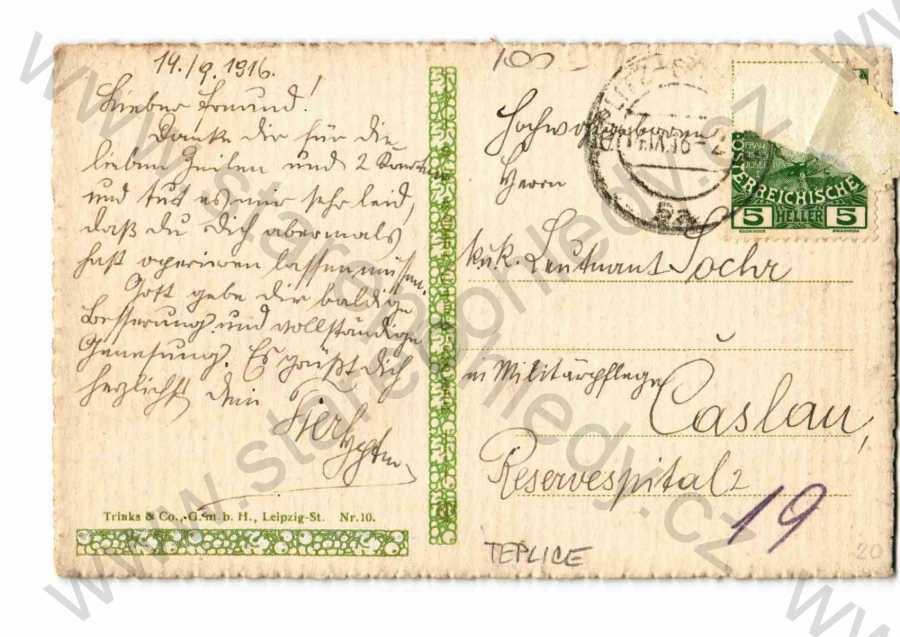 14./9. 1916.
Lieber Freund!
Danke dir für die
lieben Zeilen und 2 Karten
und tut es mir sehr leid,
daß du dich abermals
hast operieren lassen müssen.
Gott gebe dir baldige
Besserung und vollständige
Genesung. Es grüßt dich
herzlichst dein
Trinks & Co., G. m. b. H., Leipzig-St. Nr. 10.
Hochwohlgeboren
Herrn
k.u.k. Leutnant Sochr
in Militärpflege
Caslau,
Reservespital 2
19
TEPLICE
20
ÖSTERREICHISCHE
5 HELLER 5
www.starepohledy.cz